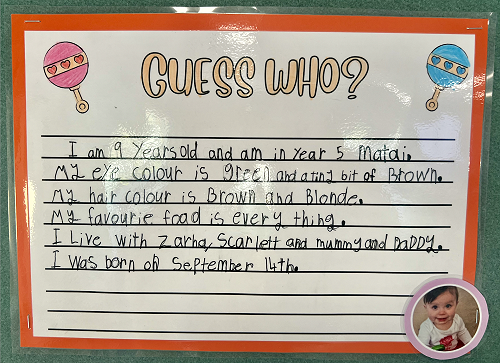 GUESS WHO?
I am 9 Years old and am in Year 5 Matai.
My eye colour is green and a tiny bit of Brown.
My hair colour is Brown and Blonde.
My favourie food is every thing.
I Live with Zarha, Scarlett and mummy and DaDDY.
I was born on September 14th.